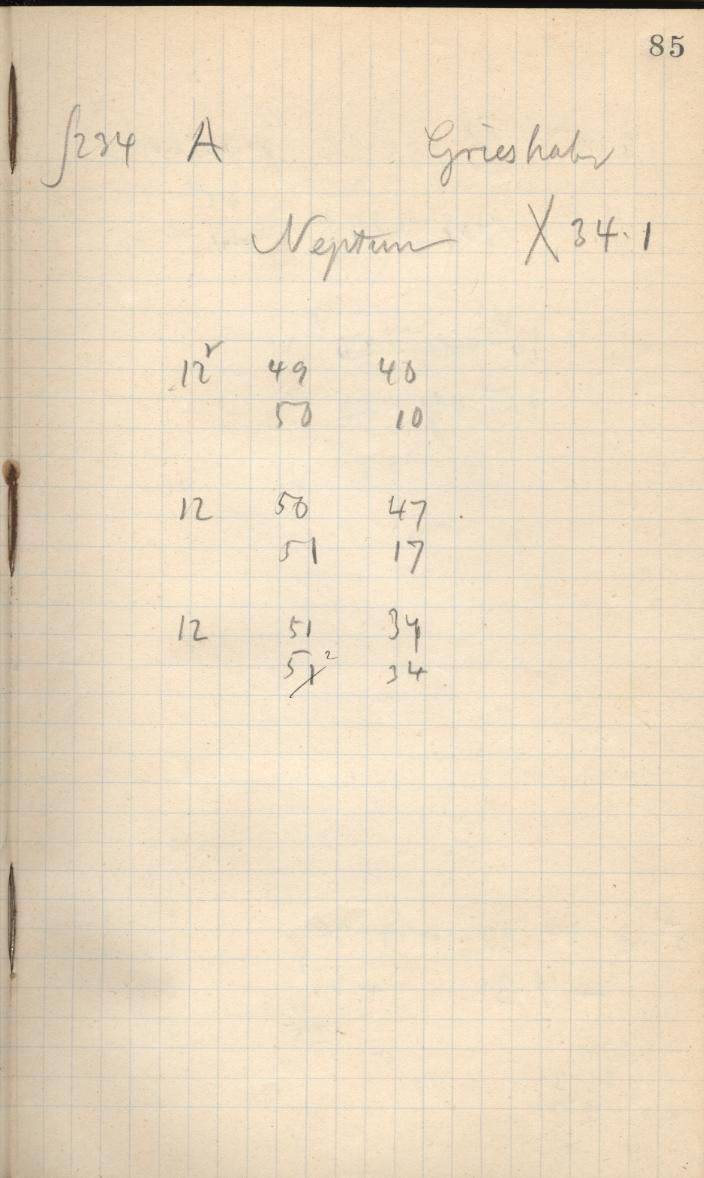 85
∫234 A Grieshaber
Neptun X 34.1
12 49 40
50 10
12 50 47
51 17
12 51 34
51 2 34